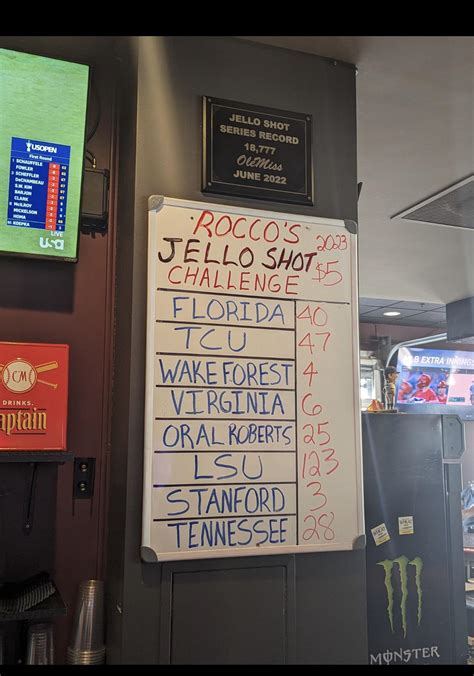 JELLO SHOT
SERIES RECORD
18,777
OleMiss
JUNE 2022
USOPEN
First Round
1 SCHAUFFELE
FOWLER
3 SCHEFFLER
DeCHAMBEAU
S.W. KIM
CLARK
McILROY
MICKELSON
HOMA
KOEPKA
LIVE
USA
ROCCO'S 2023
JELLO SHOT $5
CHALLENGE
FLORIDA 40
TCU 47
WAKE FOREST 4
VIRGINIA 6
ORAL ROBERTS 25
LSU 123
STANFORD 3
TENNESSEE 28
CM
DRINKS.
aptain
EXTRA INNINGS
MONSTER